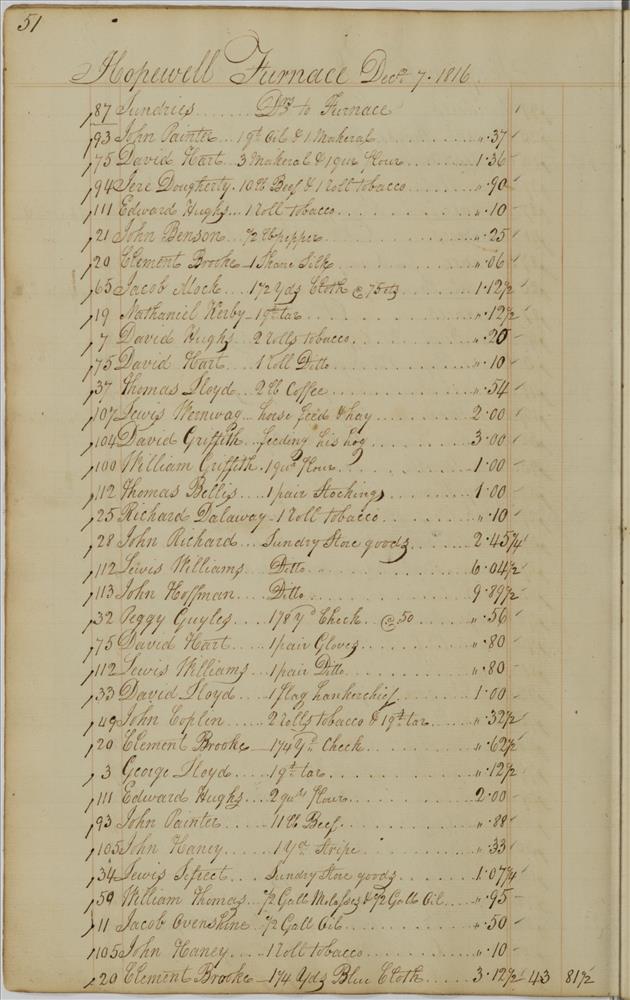 51
Hopewell Furnace Decr 7. 1816
87 Sundries Drs to Furnace
93 John Painter 1 qt Oil & 1 Makeral .37
75 David Hart 3 Makeral & 1 qur flour 1.36
94 Jere Dougherty 10 lb Beef & 1 Roll tobacco .90
111 Edward Hughs 1 Roll tobacco .10
21 John Benson 1/2 lb pepper .25
20 Clement Brooke 1 Skane Silk .06
65 Jacob Mock 1 1/2 Yds Cloth @ 75 cts 1.12 1/2
19 Nathaniel Kerby 1 qt tar .12 1/2
7 David Hughs 2 Rolls tobacco .20
75 David Hart 1 Roll Ditto .10
37 Thomas Lloyd 2 lb Coffee .54
107 Lewis Wernwag horse feed & hay 2.00
104 David Griffith feeding his hog 3.00
100 William Griffith 1 qur flour 1.00
112 Thomas Bellis 1 pair Stockings 1.00
25 Richard Dalaway 1 Roll tobacco .10
28 John Richard Sundry Store goods 2.45 1/4
112 Lewis Williams Ditto 6.04 1/2
113 John Hoffman Ditto 9.89 1/2
32 Peggy Guyles 1 1/8 Yd Check @ 50 .56
75 David Hart 1 pair Gloves .80
112 Lewis Williams 1 pair Ditto .80
33 David Lloyd 1 flag hankerchief 1.00
49 John Coplin 2 Rolls tobacco & 1 qt tar .32 1/2
20 Clement Brooke 1 1/4 Yd Check .62 1/2
3 George Lloyd 1 qt tar .12 1/2
111 Edward Hughs 2 qurs flour 2.00
93 John Painter 11 lb Beef .88
105 John Haney 1 Yd Stripe .33
34 Lewis Sundry Store goods 1.07 1/4
59 William Thomas 1/2 Gall Molasses & 1/2 Gall Oil .95
11 Jacob Ovenshine 1/2 Gall Oil .50
105 John Haney 1 Roll tobacco .10
20 Clement Brooke 1 1/4 Yds Blue Cloth 3.12 1/2 43 81 1/2